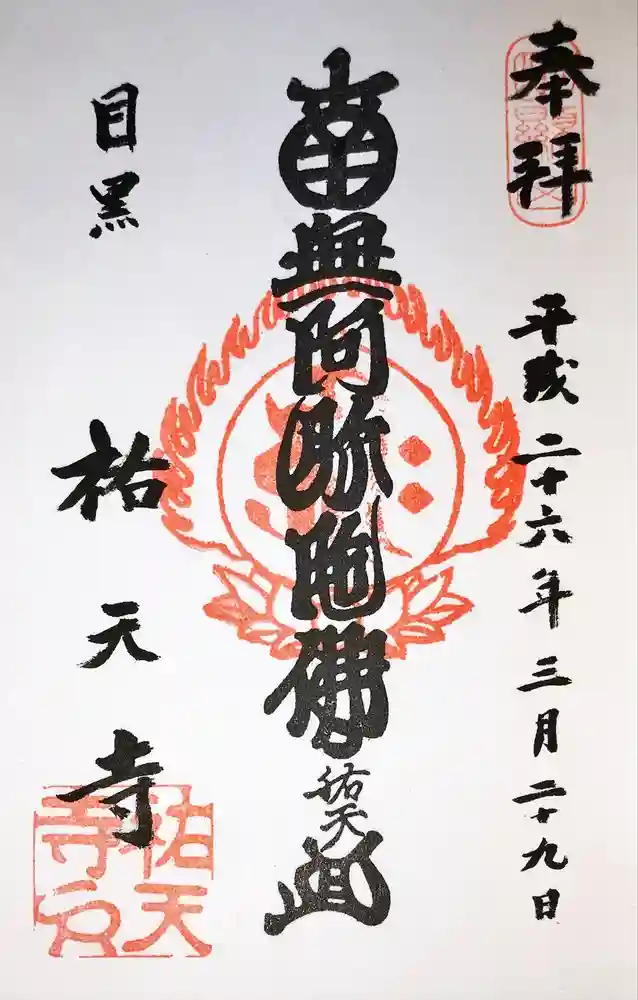 奉拝
平成二十六年三月二十九日
南無阿弥陀佛
祐天
目黒
祐天寺
祐天
寺印